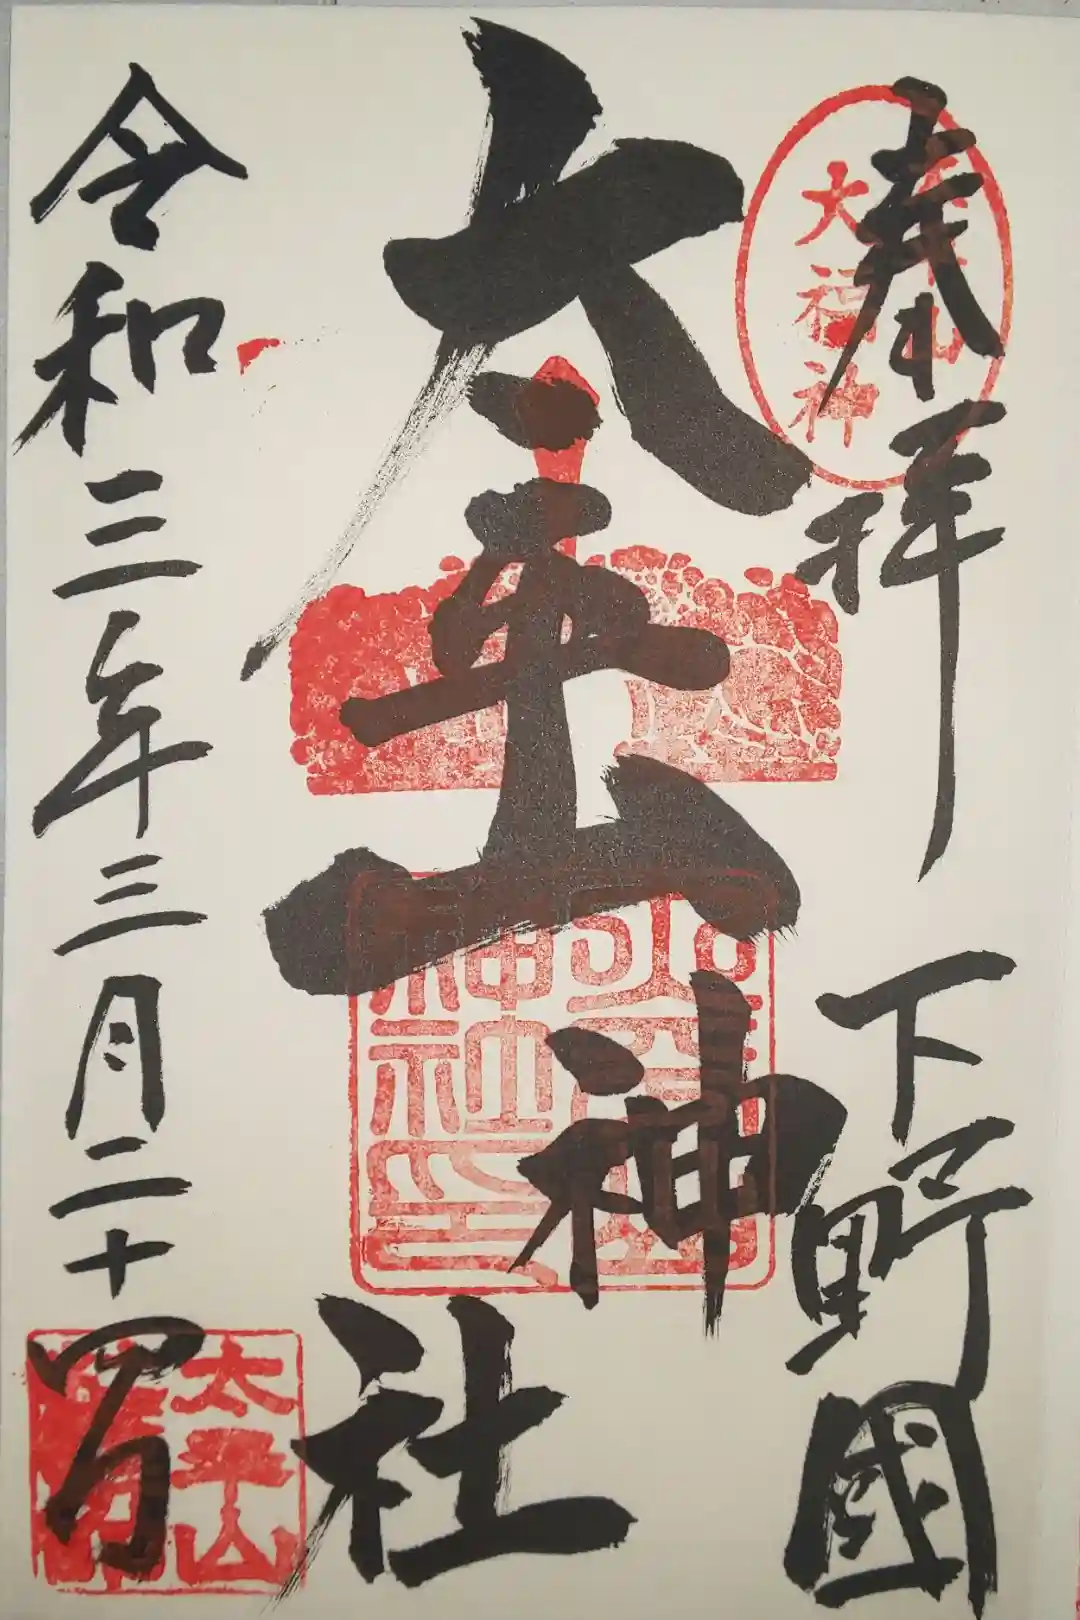 奉拝 下野國
太平山
大福神
太平山神社
令和三年三月二十四日
太平山